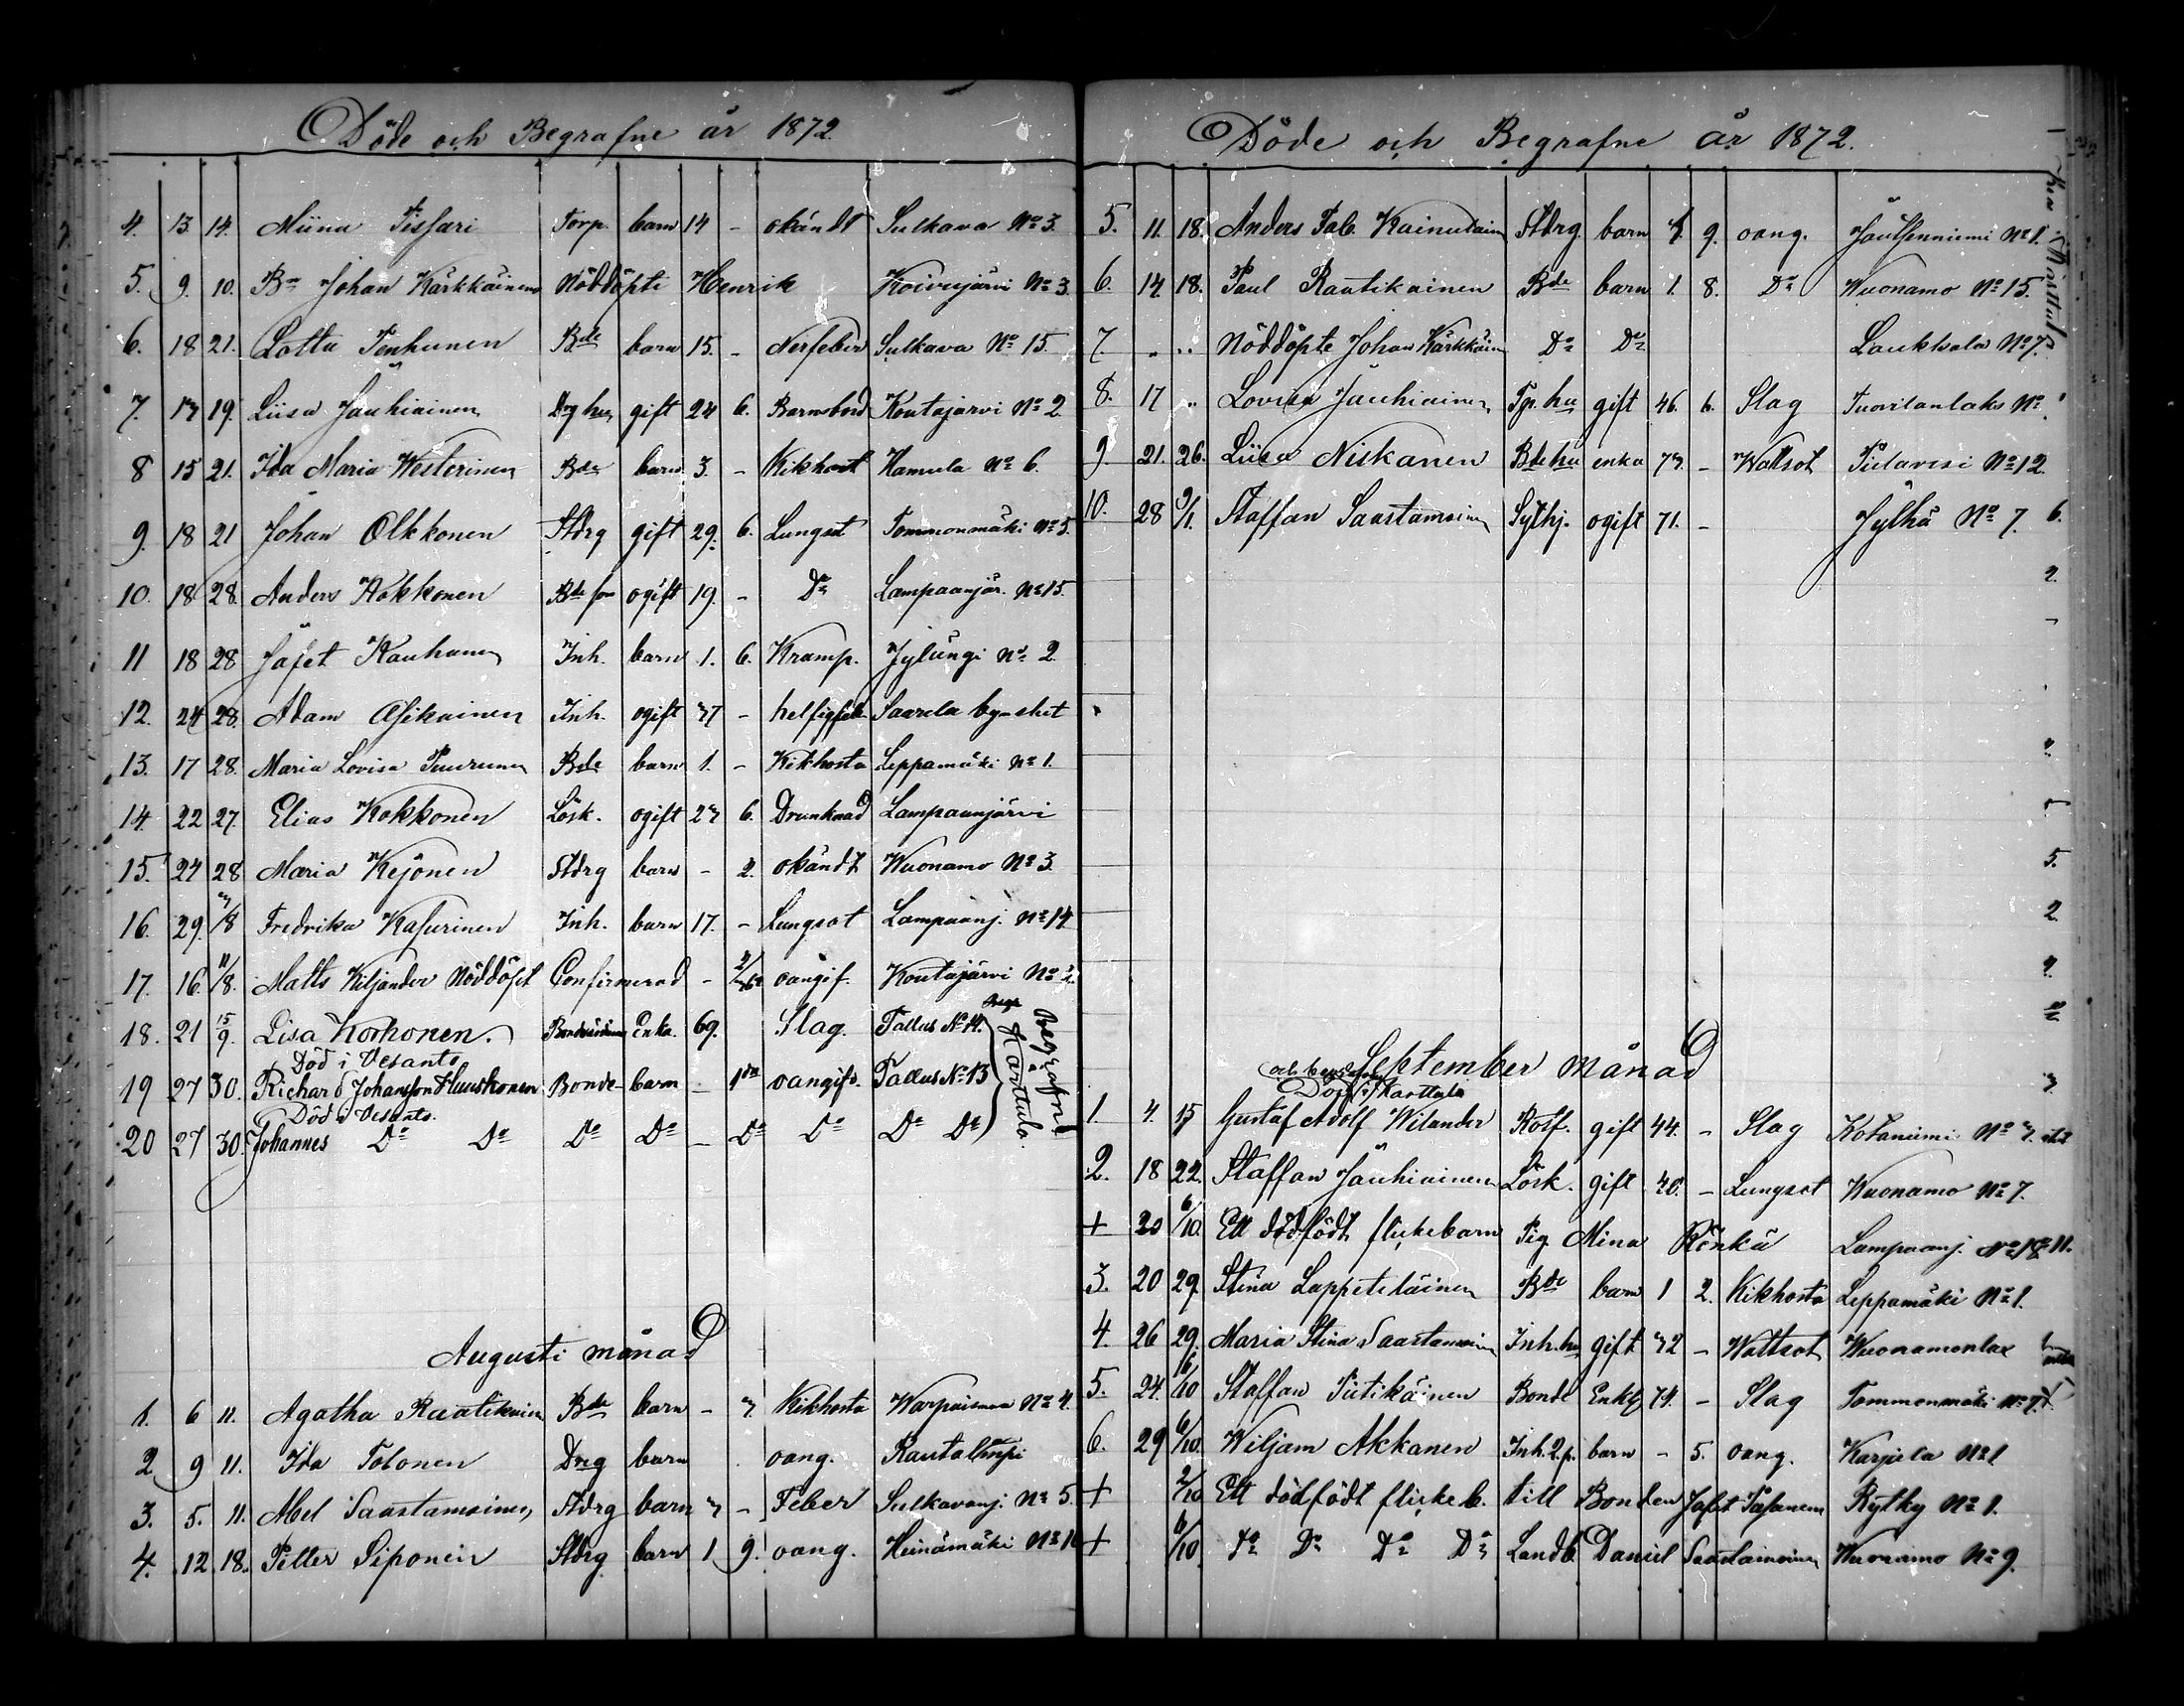 Döde och Begrafne år 1872.
4. 13. 14. Miina Tissari Torp. barn 14 - okändt Sulkava No 3.
5. 9. 10. Bn Johan Kärkkäinens Nöddöpti Henrik Koivujärvi No 3.
6. 18 21. Lotta Tenhunen Bde barn 15. - Nerfeber Sulkava No 15.
7. 17 19. Liisa Jauhiainen Drg hu gift 24 6. Barnsbörd Koutajärvi No 2
8 15 21. Ida Maria Westerinen Bde barn 3. - Kikhost Hamula No 6.
9. 18 21 Johan Olkkonen Stdrg gift 29. 6. Lungsot Tommonmäki No 5.
10. 18 28. Anders Kokkonen Bde son ogift 19. - Do Lampaanjär. No 15.
11 18 28 Jafet Kauhanen Inh. barn 1. 6. Kramp. Jylängi No 2
12. 24 28. Adam Asikainen Inh. ogift 77 - Saarela by
13. 17 28. Maria Lovisa Puurunen Bde barn 1. - Kikhosta Leppämäki No 1.
14. 22 27. Elias Kokkonen Lösk. ogift 27 6. Drunknad Lampaanjärvi
15. 24 28 Maria Kejonen Stdrg barn - 2. okändt Wuonamo No 3.
16. 29. 7/8 Fredrika Kasurinen Inh. barn 17. - Lungsot Lampaanj. No 14
17. 16. 11/8. Matts Kiljander Nöddöpt Confirmerad - oangif. Koutajärvi No 2.
18. 21 15/9. Lisa Korhonen. Enka. 69. Slag. Tallus No 14.
Död i Vesanto
19 27 30. Richard Johansson Huuskonen Bonde barn - 1da oangifv. Tallus No 13
Död i Vesanto.
20 27 30. Johannes Do Do Do Do - Do Do Do Do
Begrafne i Karttula.
Augusti månad
1. 6 11. Agatha Raatikainen Bde barn - 7. Kikhosta Warpaismaa No 4.
2. 9 11. Ida Tolonen Drg barn oang. Rautalampi
3. 5. 11. Abel Saastamoinen Stdrg barn 7 - Feber Sulkavanj. No 5.
4. 12 18. Petter Siponen Stdrg barn 1 9. oang. Heinämäki No 10
Döde och Begrafne år 1872.
5. 11. 18. Anders Gab. Kainulainen Stdrg. barn 9. oang. Jauhenniemi No 1.
6. 14 18. Paul Rautikainen Bde barn 1. 8. Do Wuonamo No 15.
7. " " Nöddöpte Johan Kärkkäin Do Do Laukkala No 7.
8. 17 " Lovisa Jauhiainen Tp. hu gift 46. 6. Slag Tuovilanlaks No
9 21. 26. Liisa Niskanen Bde hu enka 77. - Wattsot Pielavesi No 12.
10. 28 9/1. Staffan Saastamoinen Sythj. ogift 71. - Jylhä No 7.
September månad
och begrafven
Död i Karttula
1. 4. 15 Gustaf Adolf Wilander gift 44. - Slag Kotaniemi No 7.
2. 18 22. Staffan Jauhiainen Lösk. gift 40. - Lungsot Wuonamo No 7.
+ 20 6/10. Ett dödfödt flickebarn Pig. Mina Rönkä Lampaanj. No 18
3. 20 29. Stina Lappeteläinen Bde barn 1 2. Kikhosta Leppämäki No 1.
4. 26 29. Maria Stina Saastamoinen Inh. hu gift 72 - Wattsot Wuonamonlax
5. 24. 6/10 Staffan Pietikäinen Bonde Enkl 74. - Slag Tommonmäki No 7.
6. 29 6/10. Wiljam Akkanen Inh. 2.p. barn - 5. oang. Karjula No 1
+ 2/10 Ett dödfödt flicke b. till Bonden Jafet Rytky No 1.
+ 6/10 Do Do Do Do Landb. Daniel Saastamoinen Wuonamo No 9.